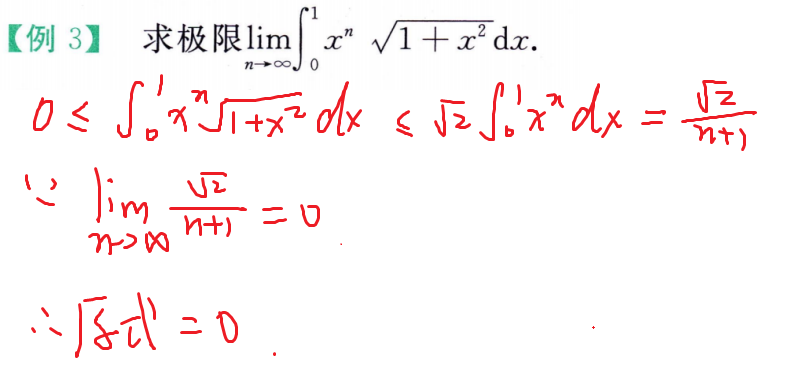 【例 3】 求极限lim_{n→∞}∫_0^1 x^n √(1+x²)dx.
0 ≤ ∫_0^1 x^n √(1+x²) dx ≤ √2 ∫_0^1 x^n dx = √2/(n+1)
∵ lim_{n→∞} √2/(n+1) = 0
∴ 原式 = 0 .